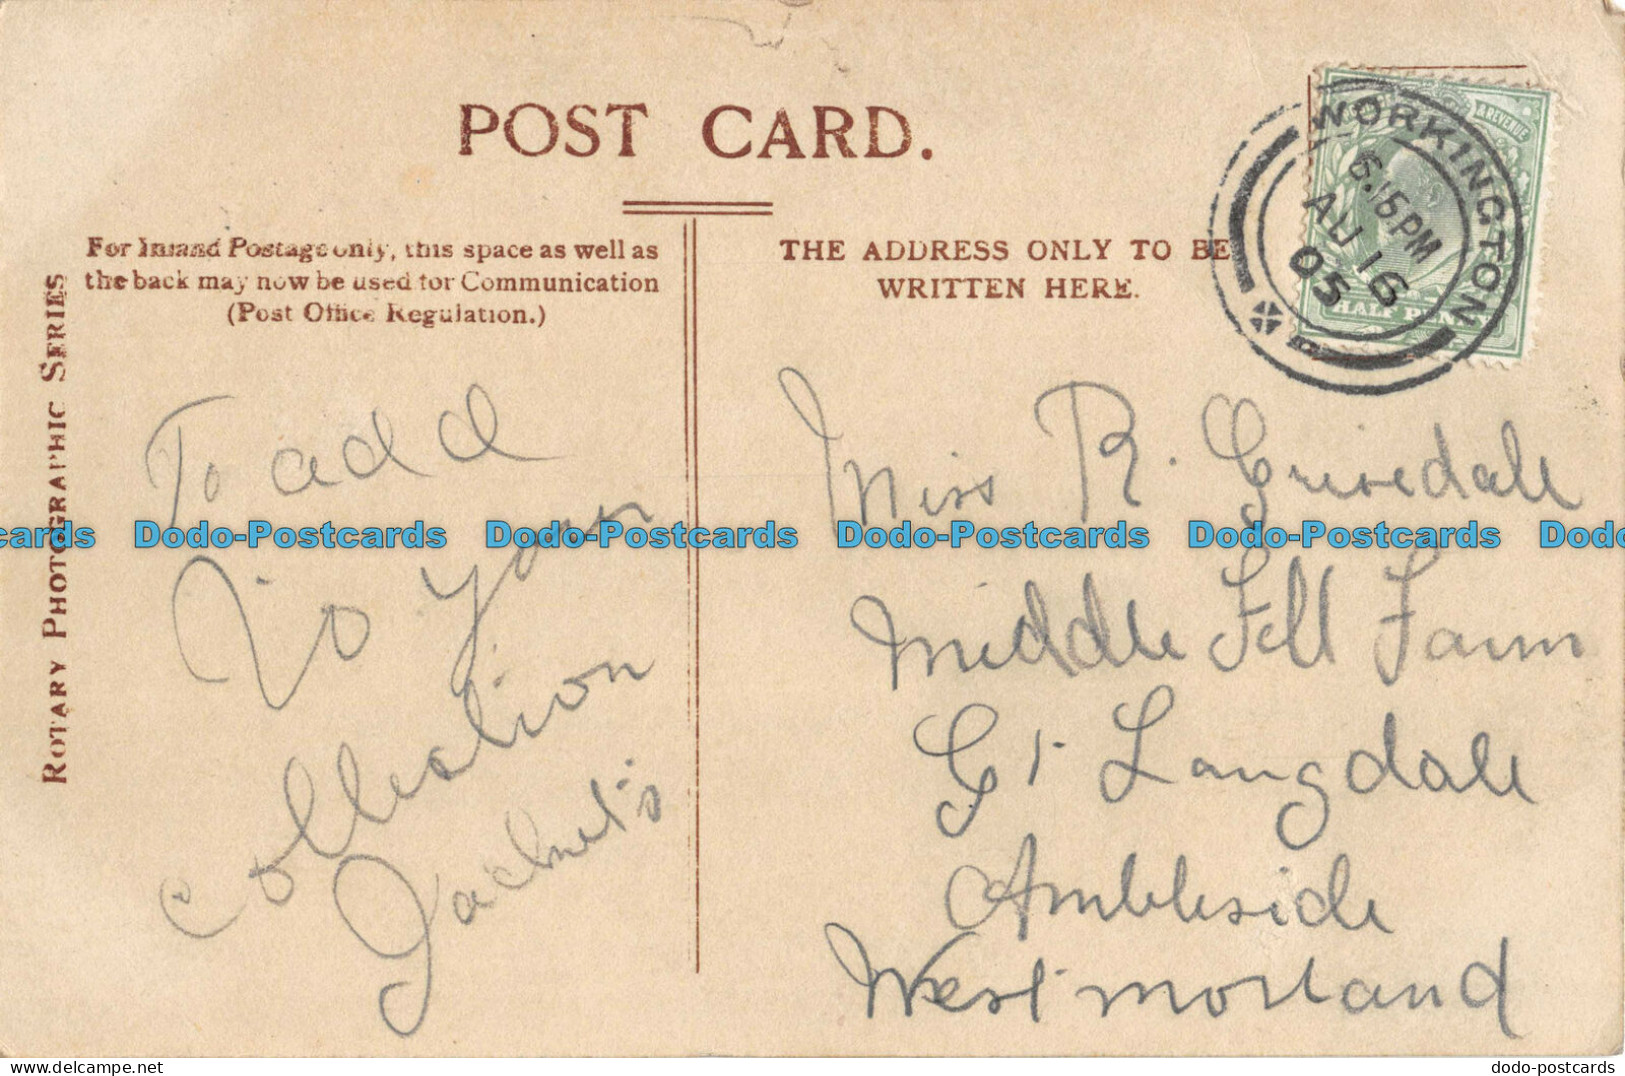 POST CARD.
For Inland Postage only, this space as well as
the back may now be used for Communication
(Post Office Regulation.)
THE ADDRESS ONLY TO BE
WRITTEN HERE.
ROTARY PHOTOGRAPHIC SERIES
WORKINGTON
6.15PM
AU 16
05
& REVENUE
HALF PENNY
To add
to your
collection
Miss R. Grisedale
Middle Fell Farm
Gt Langdale
Ambleside
Westmorland
Dodo-Postcards Dodo-Postcards Dodo-Postcards Dodo-Postcards
dodo-postcards